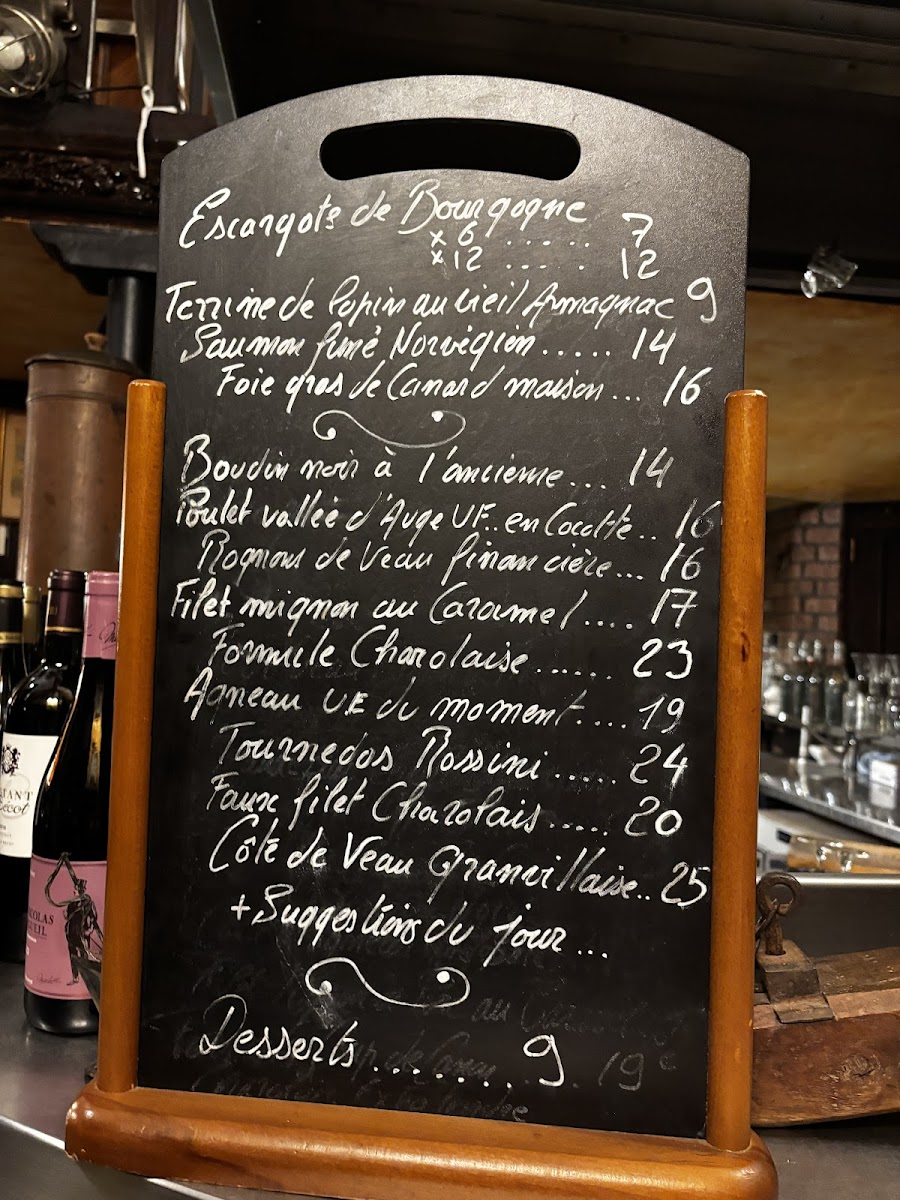 Escargots de Bourgogne
x 6 ...... 7
x 12 ..... 12
Terrine de lapin au vieil Armagnac 9
Saumon fumé Norvégien ..... 14
Foie gras de Canard maison ... 16
Boudin noir à l'ancienne ... 14
Poulet vallée d'Auge VF.. en Cocotte .. 16
Rognons de Veau financière ... 16
Filet mignon au Caramel .... 17
Formule Charolaise ...... 23
Agneau U.E du moment .... 19
Tournedos Rossini ..... 24
Faux filet Charolais ..... 20
Côte de Veau Granvillaise .. 25
+ Suggestions du jour ...
Desserts ........ 9
19€